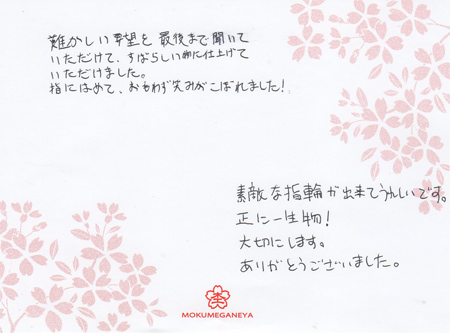 難かしい要望を最後まで聞いて
いただけて、すばらしい物に仕上げて
いただけました。
指にはめて、おもわず笑みがこぼれました!
素敵な指輪が出来てうれしいです。
正に一生物!
大切にします。
ありがとうございました。
MOKUMEGANEYA